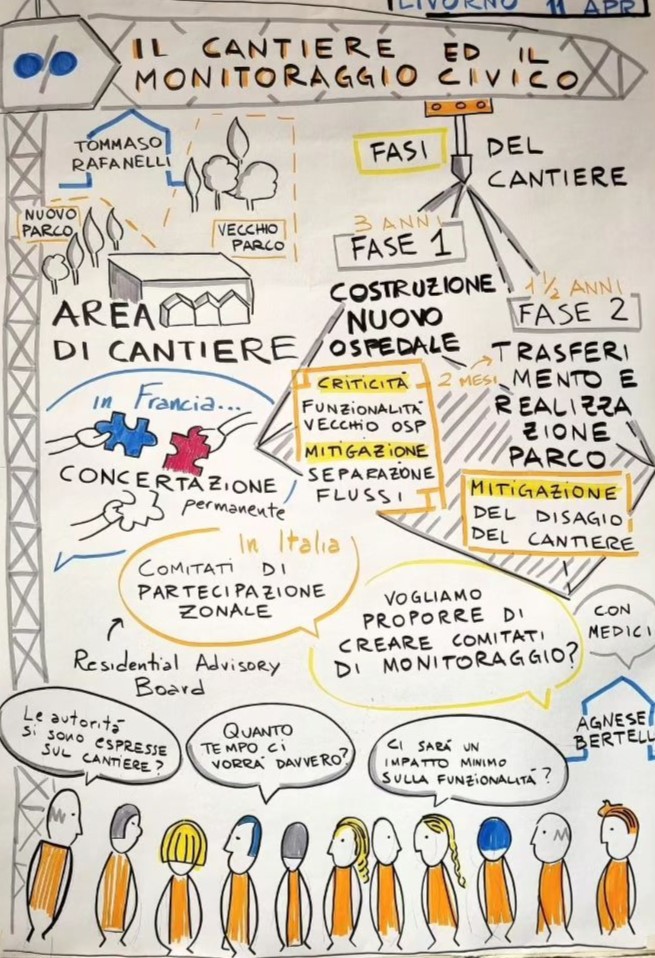 LIVORNO 11 APR
IL CANTIERE ED IL
MONITORAGGIO CIVICO
TOMMASO
RAFANELLI
NUOVO
PARCO
VECCHIO
PARCO
AREA
DI CANTIERE
FASI DEL
CANTIERE
3 ANNI
FASE 1
COSTRUZIONE
NUOVO
OSPEDALE
CRITICITÀ
FUNZIONALITÀ
VECCHIO OSP
MITIGAZIONE
SEPARAZIONE
FLUSSI
2 MESI
1 1/2 ANNI
FASE 2
TRASFERI
MENTO E
REALIZZA
ZIONE
PARCO
MITIGAZIONE
DEL DISAGIO
DEL CANTIERE
in Francia...
CONCERTAZIONE
permanente
In Italia
COMITATI DI
PARTECIPAZIONE
ZONALE
Residential Advisory
Board
VOGLIAMO
PROPORRE DI
CREARE COMITATI
DI MONITORAGGIO?
CON
MEDICI
AGNESE
BERTELL
Le autorità
si sono espresse
sul cantiere?
QUANTO
TEMPO CI
VORRÀ DAVVERO?
CI SARÀ UN
IMPATTO MINIMO
SULLA FUNZIONALITÀ?